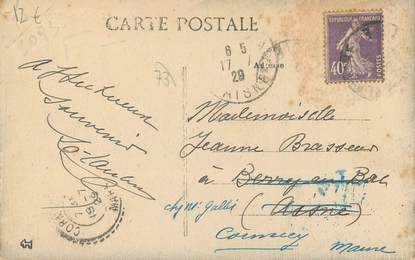 12 €
CARTE POSTALE
REPUBLIQUE FRANCAISE
40c
POSTES
6 5
17 7
29
AISNE
Affectueux
Souvenir
Mademoiselle
Jeanne Brasseur
à Berry au Bac
(Aisne)
chez Mr Gallés
Cormicy
Marne